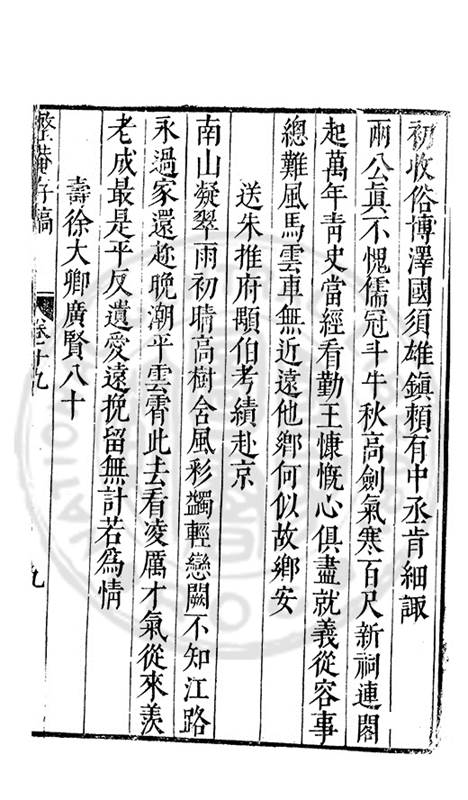 初收俗博澤國須雄鎮頼有中丞肯細諏
兩公真不愧儒冠斗牛秋高劍氣寒百尺新祠連閣
起萬年青史當經看勤王慷慨心俱盡就義從容事
總難風馬雲車無近遠他鄉何似故鄉安
送朱推府顒伯考績赴京
南山凝翠雨初晴高樹含風彩鷁輕戀闕不知江路
永過家還趂晚潮平雲霄此去看凌厲才氣從來羨
老成最是平反遺愛遠挽留無計若為情
壽徐大卿廣賢八十
整菴存稿
卷十九
九